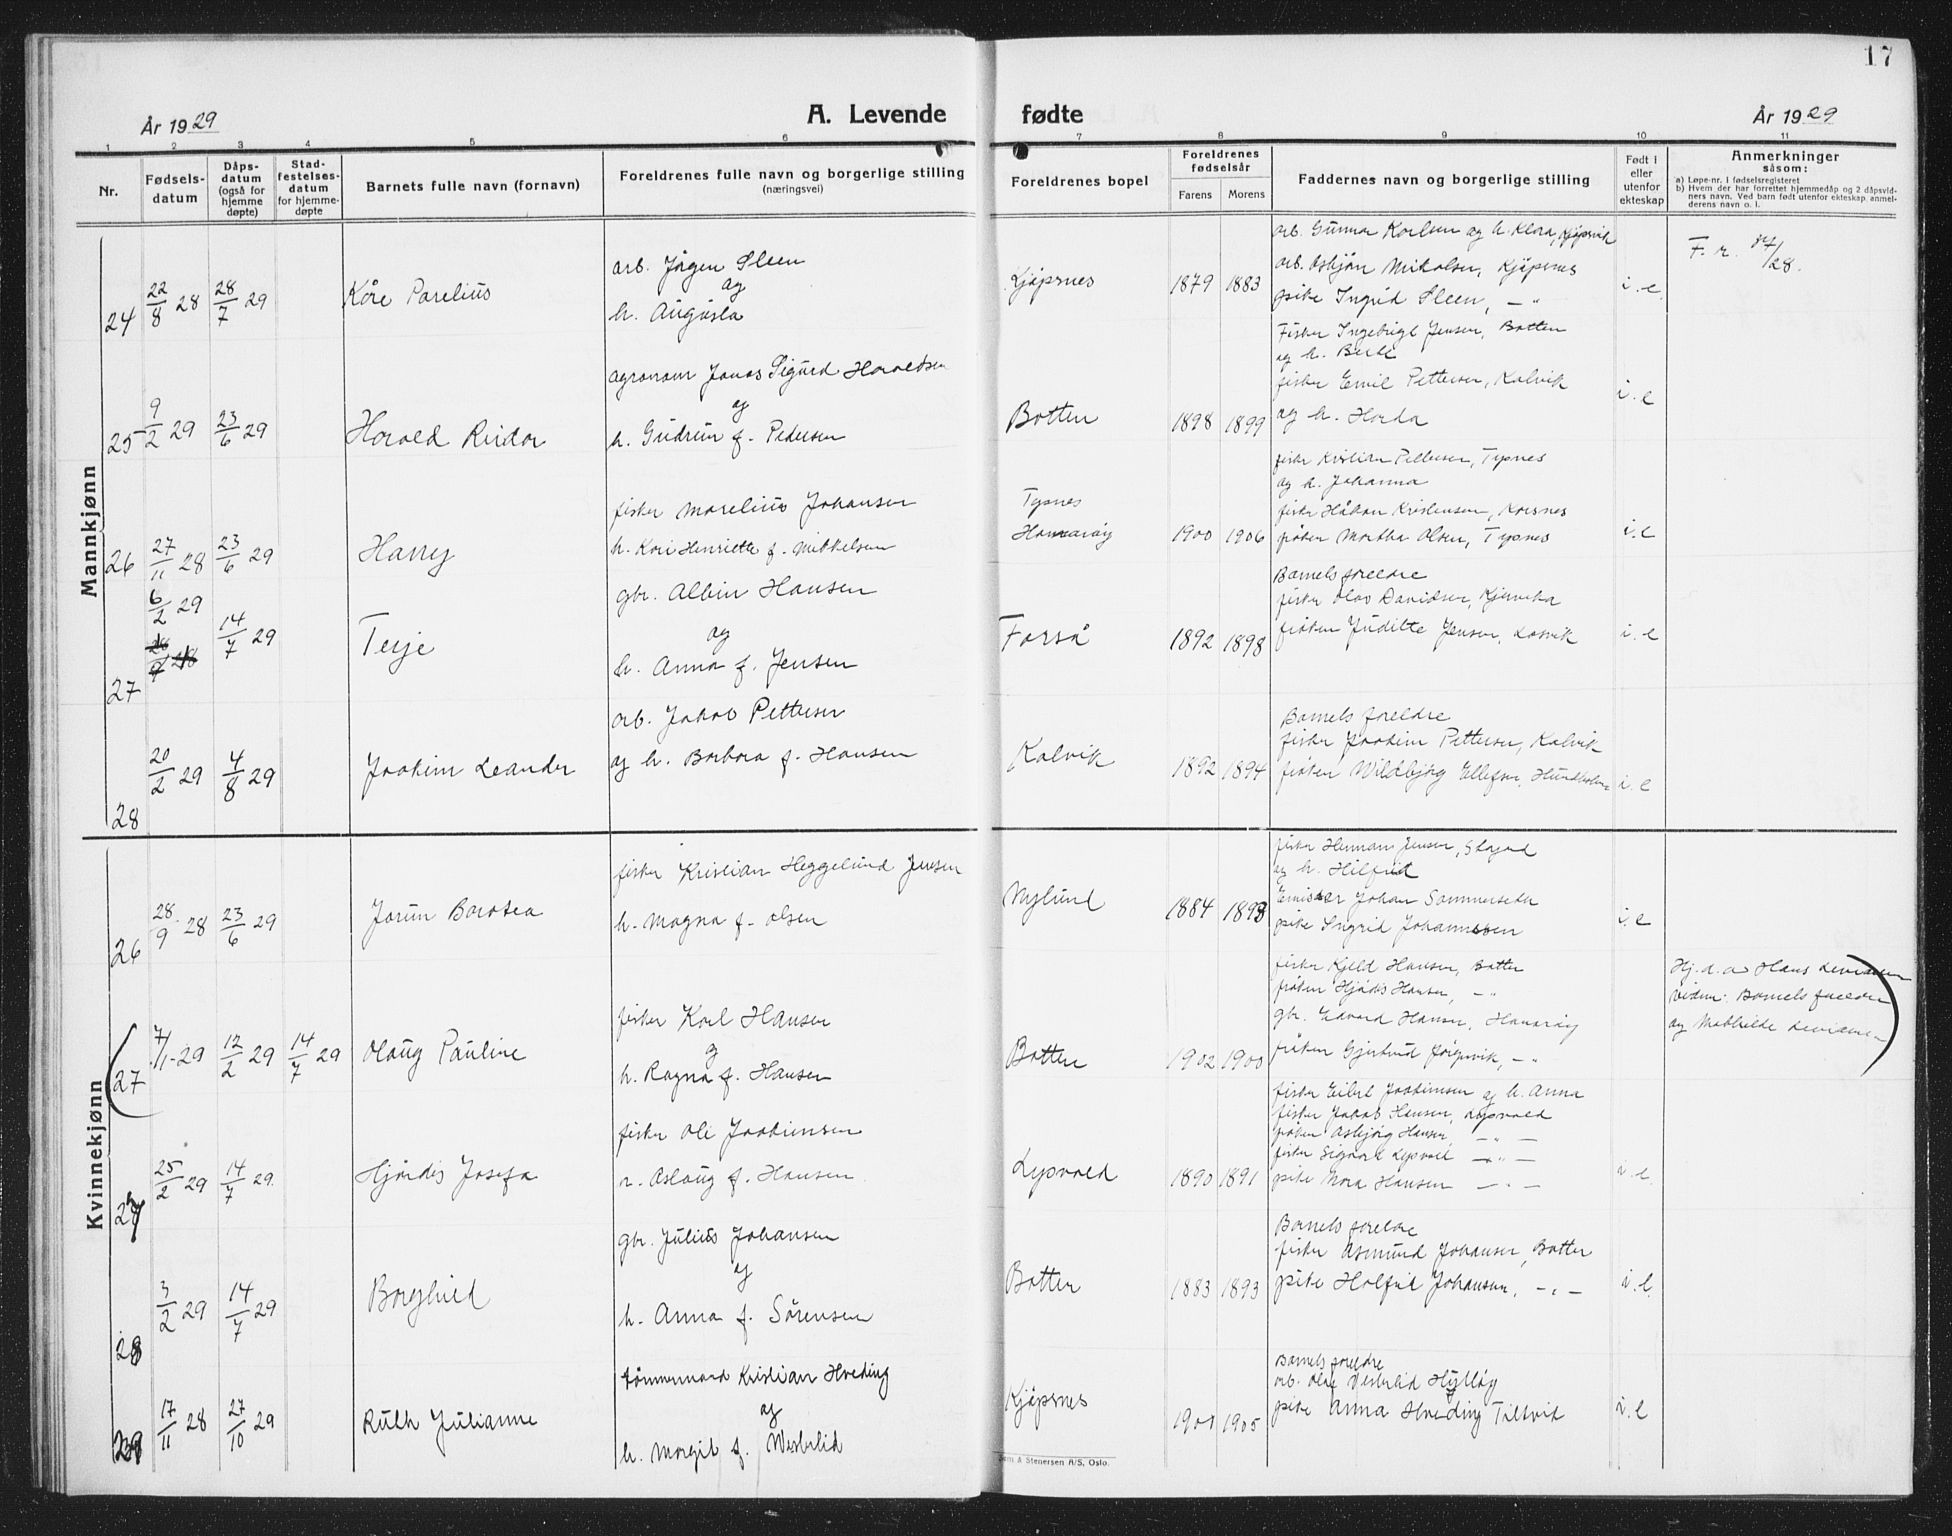 17
År 1929
A. Levende
fødte
År 1929
1 2 3 4 5 6 7 8 9 10 11
Nr.
Fødsels-
datum
Dåps-
datum
(også for
hjemme
døpte)
Stad-
festelses-
datum
for hjemme-
døpte
Barnets fulle navn (fornavn)
Foreldrenes fulle navn og borgerlige stilling
(næringsvei)
Foreldrenes bopel
Foreldrenes
fødselsår
Farens Morens
Faddernes navn og borgerlige stilling
Født i
eller
utenfor
ekteskap
Anmerkninger
såsom:
a) Løpe-nr. i fødselsregisteret
b) Hvem der har forrettet hjemmedåp og 2 dåpsvid-
ners navn. Ved barn født utenfor ekteskap anmel-
derens navn o. l.
Mannkjønn
24 22/8 28 28/7 29 Kåre Parelius
arb. Jørgen Steen
og
h. Augusta
Kjøpsnes 1879 1883
arb. Gunnar Karlsen og h. Klara, Kjøpsvik
arb. Asbjørn Mikalsen, Kjøpsnes
pike Ingrid Steen, —"
i. e.
F. r. /28.
25 9/2 29 23/6 29 Harald Reidar
agronom Jonas Sigurd Haraldsen
og
h. Gudrun f. Pedersen
Botten 1898 1899
Fisker Ingebrigt Jensen, Botten
og h. Berit
fisker Emil Pettersen, Kalvik
og h. Harda
i. e
26 27/11 28 23/6 29 Harry
fisker Marelius Johansen
h. Kari Henriette f. Mikkelsen
Tysnes
Hamarøy 1900 1906
fisker Kristian Pettersen, Tysnes
og h. Johanna
fisker Håkon Kristensen, Korsnes
frøken Martha Olsen, Tysnes
i. e
27 6/2 29 14/7 29 Terje
gbr. Albin Hansen
og
h. Anna f. Jensen
Forså 1892 1898
Barnets foreldre
fisker Olav Davidsen, Kjervika
frøken Judithe Jensen, Losvik
i. e
28 20/2 29 4/8 29 Joakim Leander
arb. Jakob Pettersen
og h. Barbara f. Hansen
Kalvik 1892 1894
Barnets foreldre
fisker Joakim Pettersen, Kalvik
frøken Wildbjørg Ellefsen, Hundholmen
i. e
Kvinnekjønn
26 28/9 28 23/6 29 Jorun Barotea
fisker Kristian Heggelund Jensen
h. Magna f. Olsen
Nylund 1884 1893
fisker Herman Jensen, Skogad
og h. Hilfrid
Emissær Johan Sommerseter
pike Ingrid Johannessen
i. e
27 7/1 29 12/2 29 14/7 29 Olaug Pauline
fisker Karl Hansen
og
h. Ragna f. Hansen
Botten 1902 1900
fisker Kjeld Hansen, Botten
frøken Hjørdis Hansen, —"
gbr. Edvard Hansen, Hamarøy
frøken Gjertrud Jørgvik, —"
Hj. d. av Hans Leviansen
Viden: Barnets foreldre
og Mathilde Leviansen
27 25/2 29 14/7 29 Hjørdis Josefa
fisker Ole Joakimsen
h. Aslaug f. Hansen
Lysvold 1890 1891
fisker Eilert Joakimsen og h. Anna
fisker Jakob Hansen, Lysvold
frøken Asbjørg Hansen —"—
fisker Signar Lysvold —"—
pike Nora Hansen —"—
i. e.
28 3/2 29 14/7 29 Borghild
gbr. Julius Johansen
og
h. Anna f. Sørensen
Botten 1883 1893
Barnets foreldre
fisker Asmund Johansen, Botten
pike Halfrid Johansen, —"—
i. e.
29 17/11 28 27/10 29 Ruth Julianne
tømmermand Kristian Hveding
og
h. Margit f. Westerlid
Kjøpsnes 1901 1905
Barnets foreldre
arb. Olav Westerlid Hylløy
pike Anna Hveding Tiltvik
i. e
Sem & Stenersen A/S, Oslo.